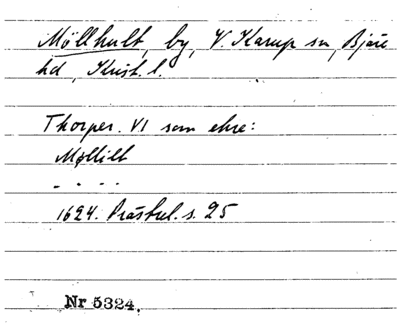 Möllhult, by, V. Karup sn, Bjäre
hd, Krist. l.
Thorper. VI som ehre:
Møllilt
- - - -
1624. Präsrel. s. 25
Nr 5324.